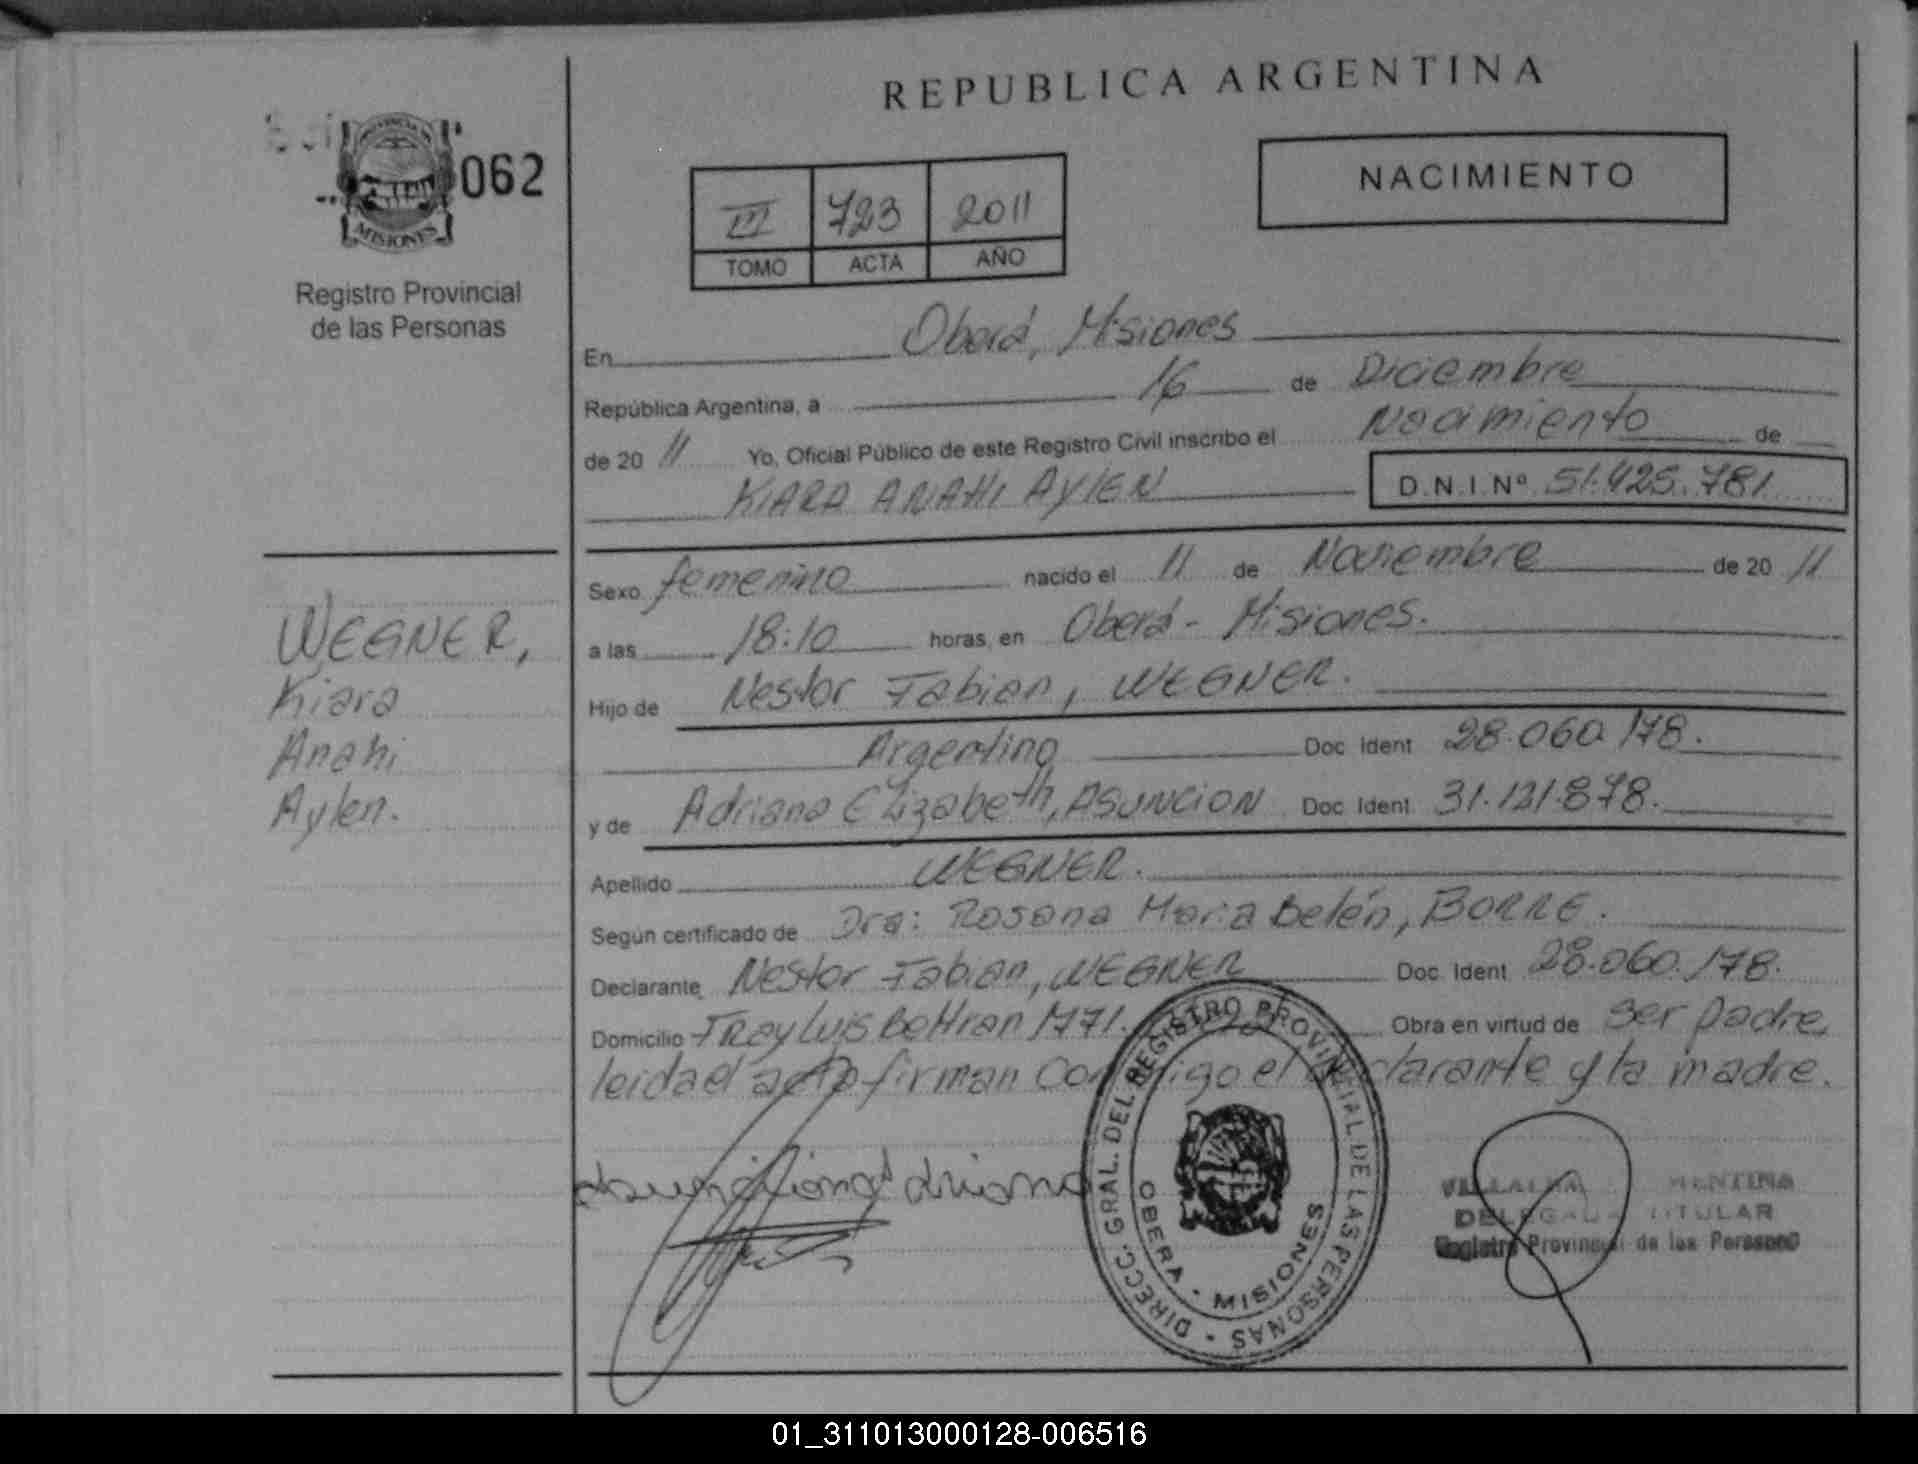 REPUBLICA ARGENTINA
NACIMIENTO
PROVINCIA DE
MISIONES
062
III 723 2011
TOMO ACTA AÑO
Registro Provincial
de las Personas
En Oberá, Misiones
República Argentina, a 16 de Diciembre
de 20 11 Yo, Oficial Público de este Registro Civil inscribo el Nacimiento de
KIARA ANAHI AYLEN D.N.I. Nº 51.425.781
Sexo femenino nacido el 11 de Noviembre de 20 11
a las 18:10 horas, en Oberá - Misiones.
Hijo de Nestor Fabian, WEGNER.
Argentino Doc. Ident 28.060.178.
y de Adriana Elizabeth, ASUNCION Doc. Ident. 31.121.878.
Apellido WEGNER.
Según certificado de Dra: Rosana Maria Belén, BORRE.
Declarante Nestor Fabian, WEGNER Doc. Ident 28.060.178.
Domicilio Fray Luis Beltran 1771. Obra en virtud de ser padre,
leida el acta firman conmigo el declarante y la madre.
WEGNER,
Kiara
Anahi
Aylen.
DIRECC. GRAL. DEL REGISTRO PROVINCIAL DE LAS PERSONAS
OBERA - MISIONES
DELEGADA TITULAR
Registro Provincial de las Personas
01_311013000128-006516